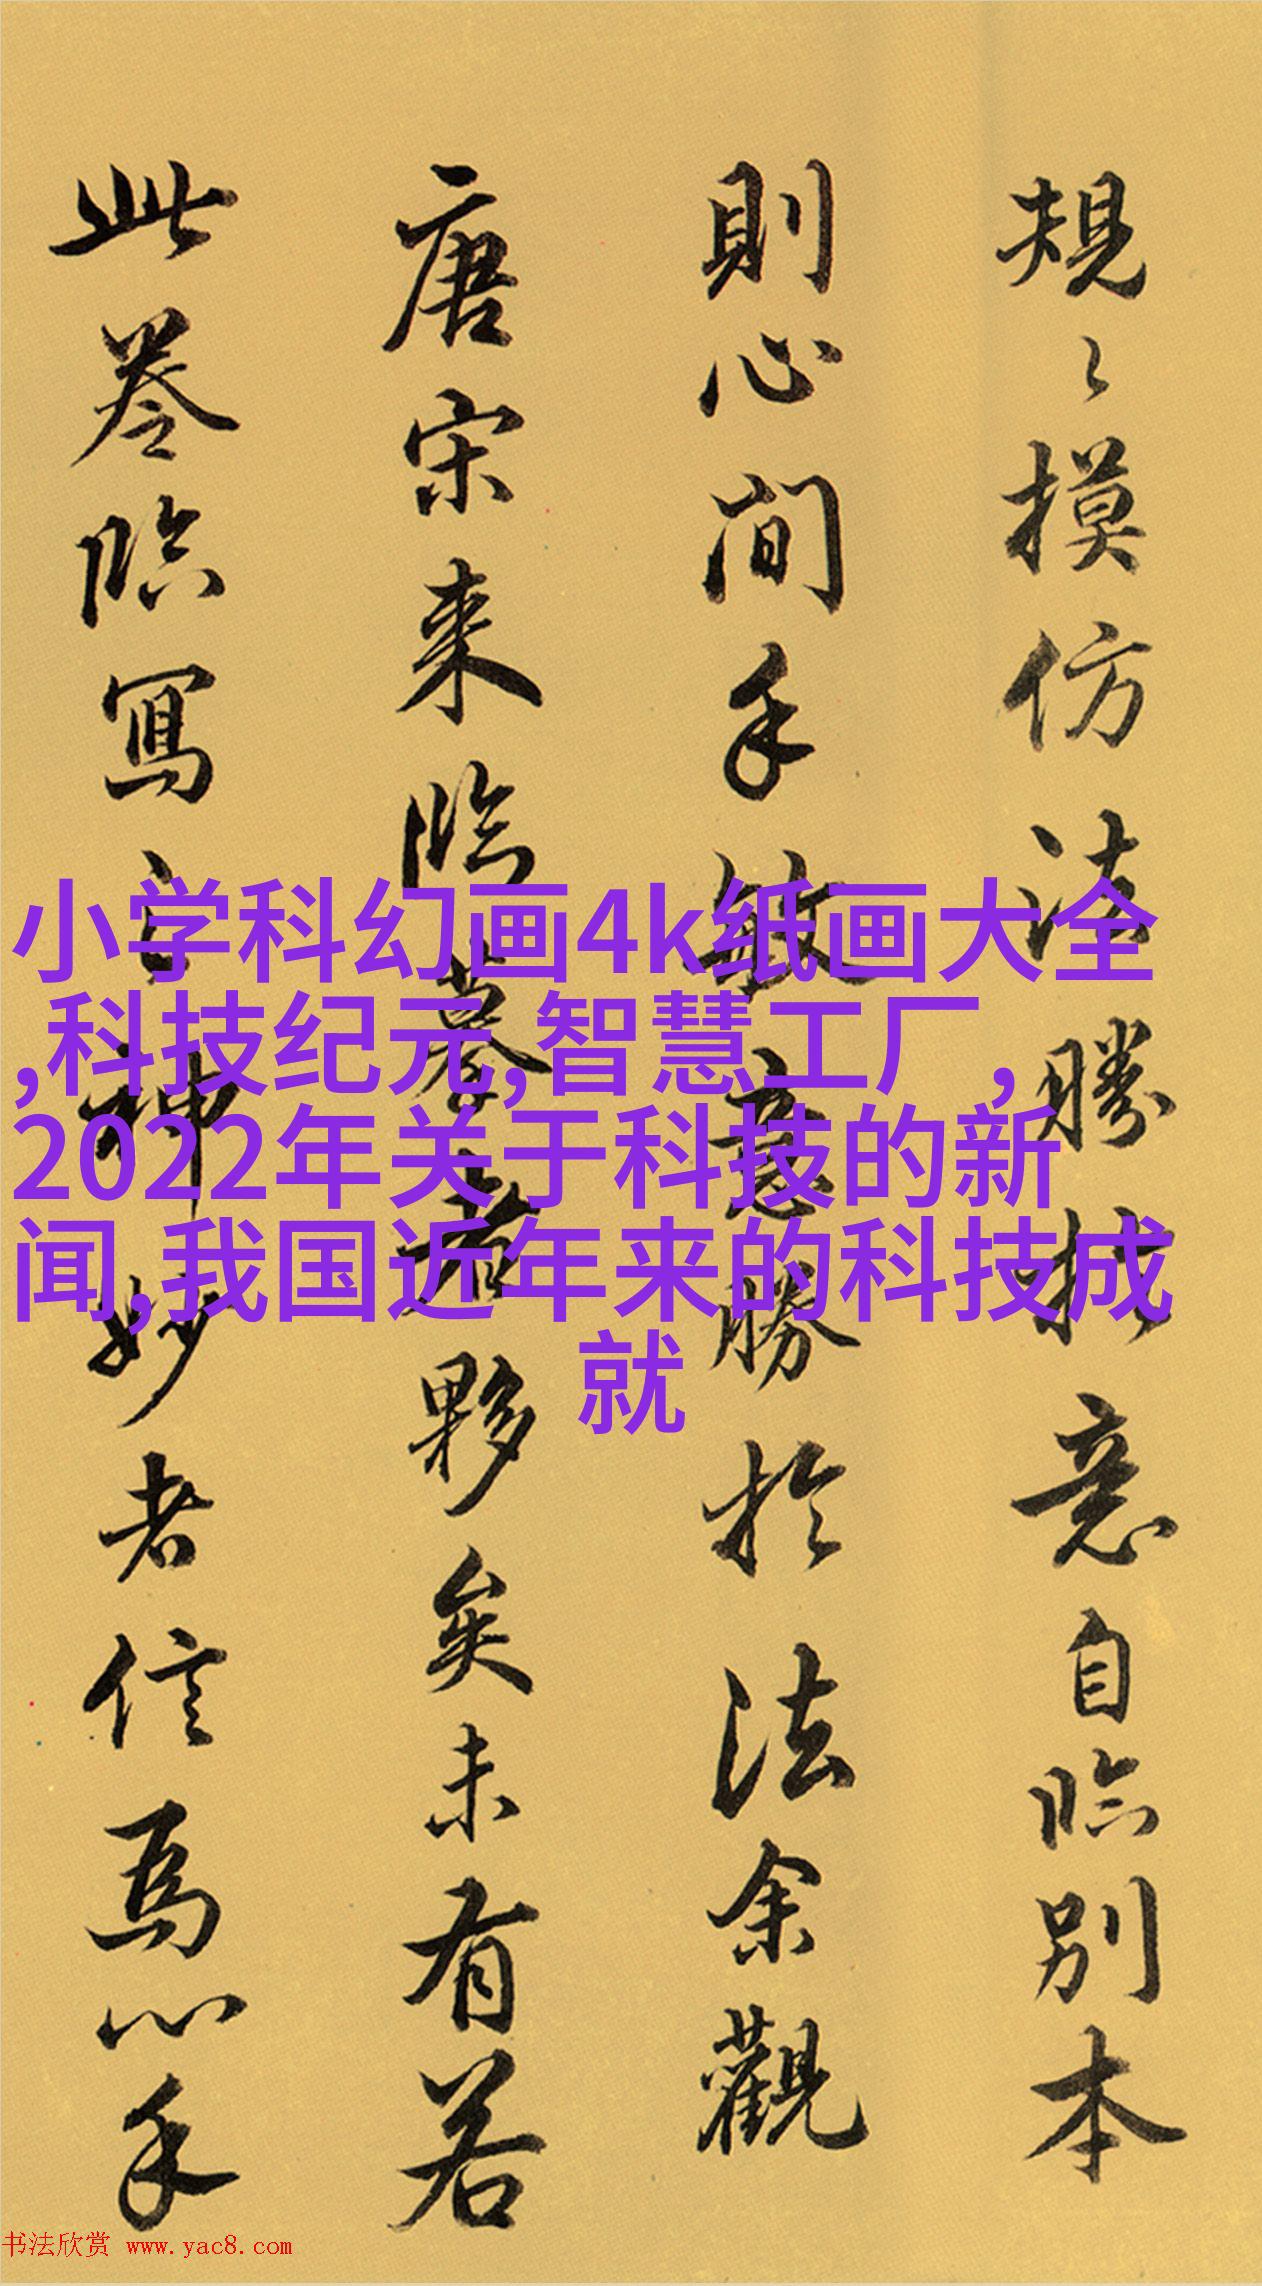 規〻摸仿法勝於意自臨别本
則心間手敏意勝於法余觀
唐宋来臨摹者夥矣未有若
此卷臨寫之神妙者信為心手
小学科幻画4k纸画大全
,科技纪元,智慧工厂，
2022年关于科技的新
闻,我国近年来的科技成
就
书法欣赏 www.yac8.com